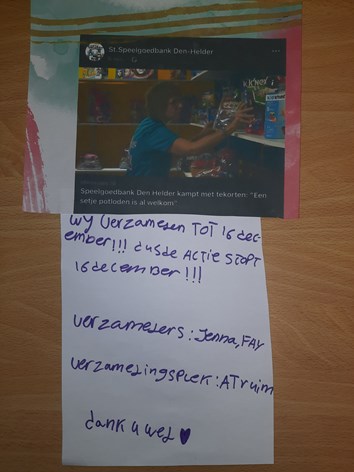 St.Speelgoedbank Den-Helder
Speelgoedbank Den Helder kampt met tekorten: "Een
setje potloden is al welkom"
wy verzamelen TOT 16 dec-
ember!!! dus de ACTie STOPT
16 december!!!
verzamelers: Jenna, FAY
verzamelingsplek: ATruim
dank u wel